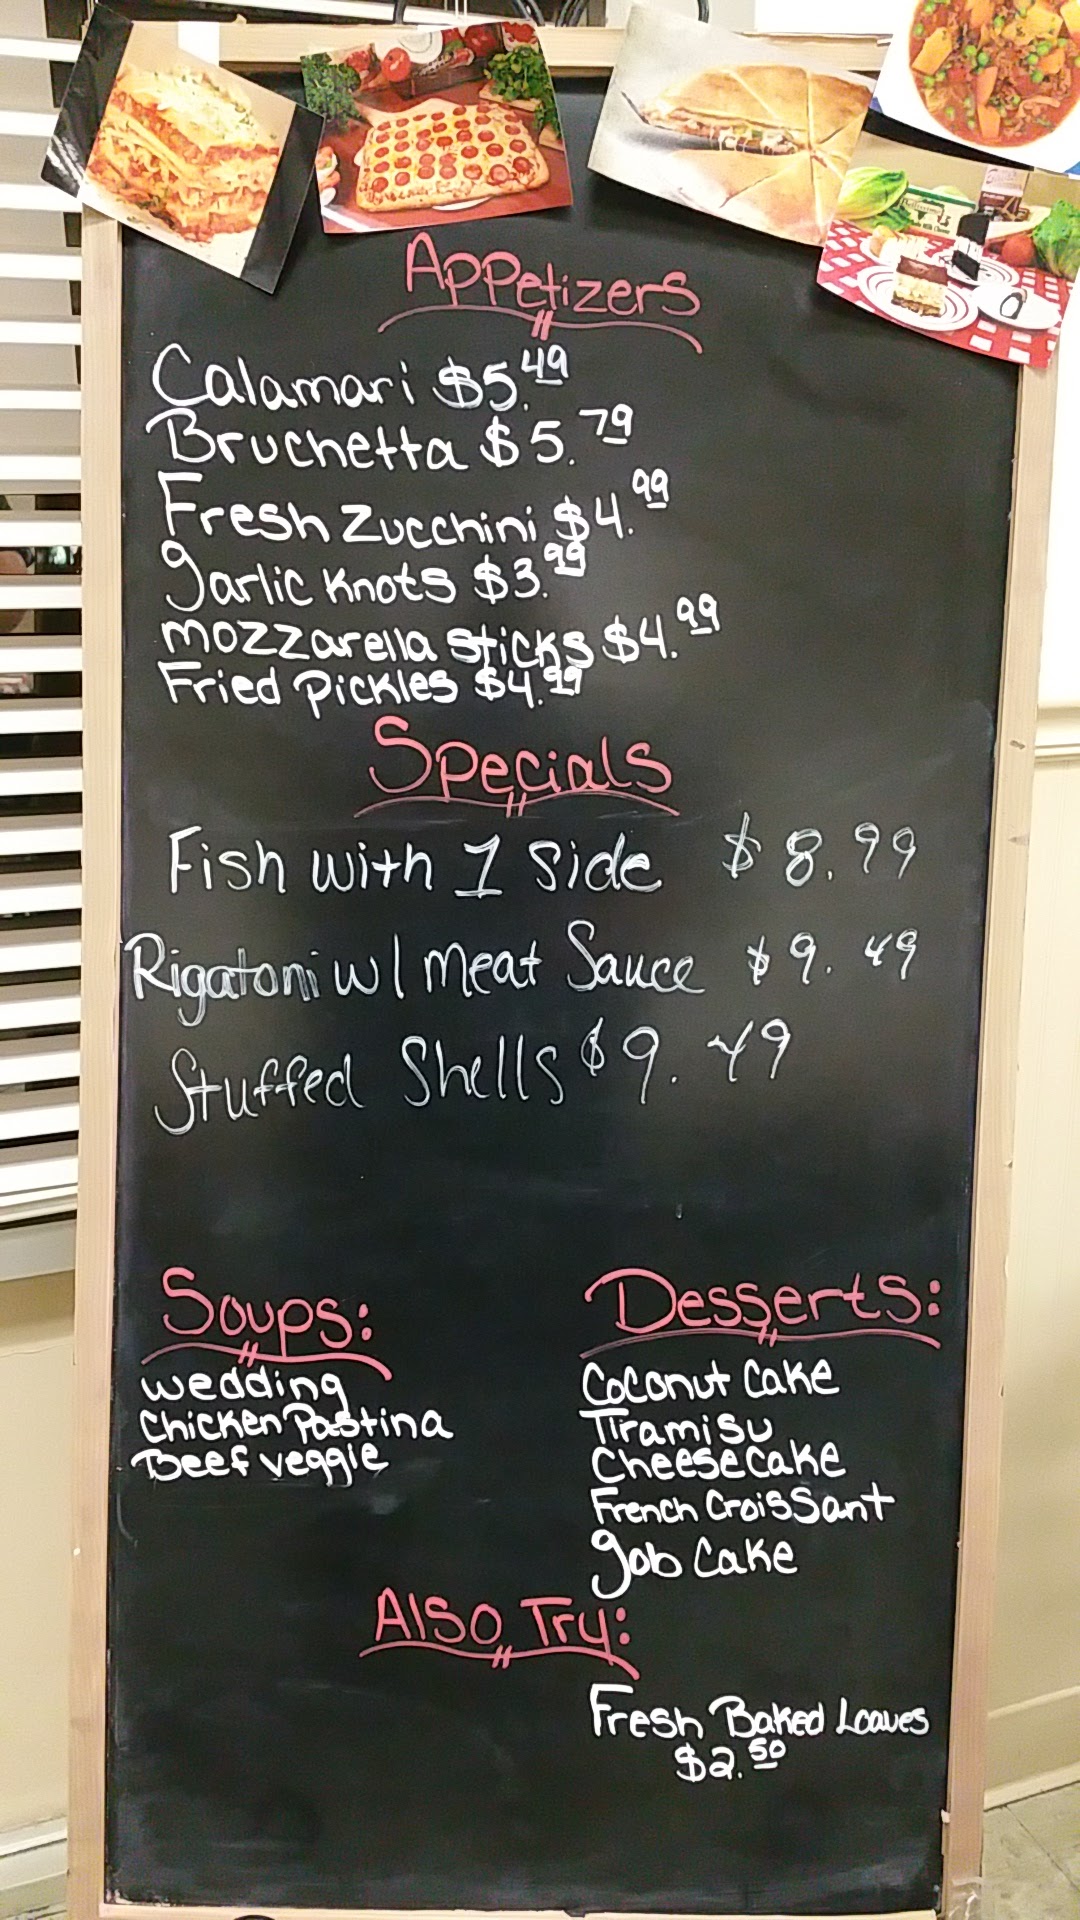 Appetizers
Calamari $5.49
Bruchetta $5.79
Fresh Zucchini $4.99
Garlic Knots $3.99
Mozzarella Sticks $4.99
Fried Pickles $4.99
Specials
Fish with 1 Side $8.99
Rigatoni w/ Meat Sauce $9.49
Stuffed Shells $9.49
Soups:
Wedding
Chicken Pastina
Beef Veggie
Desserts:
Coconut Cake
Tiramisu
Cheesecake
French Croissant
Gob Cake
Also Try:
Fresh Baked Loaves
$2.50